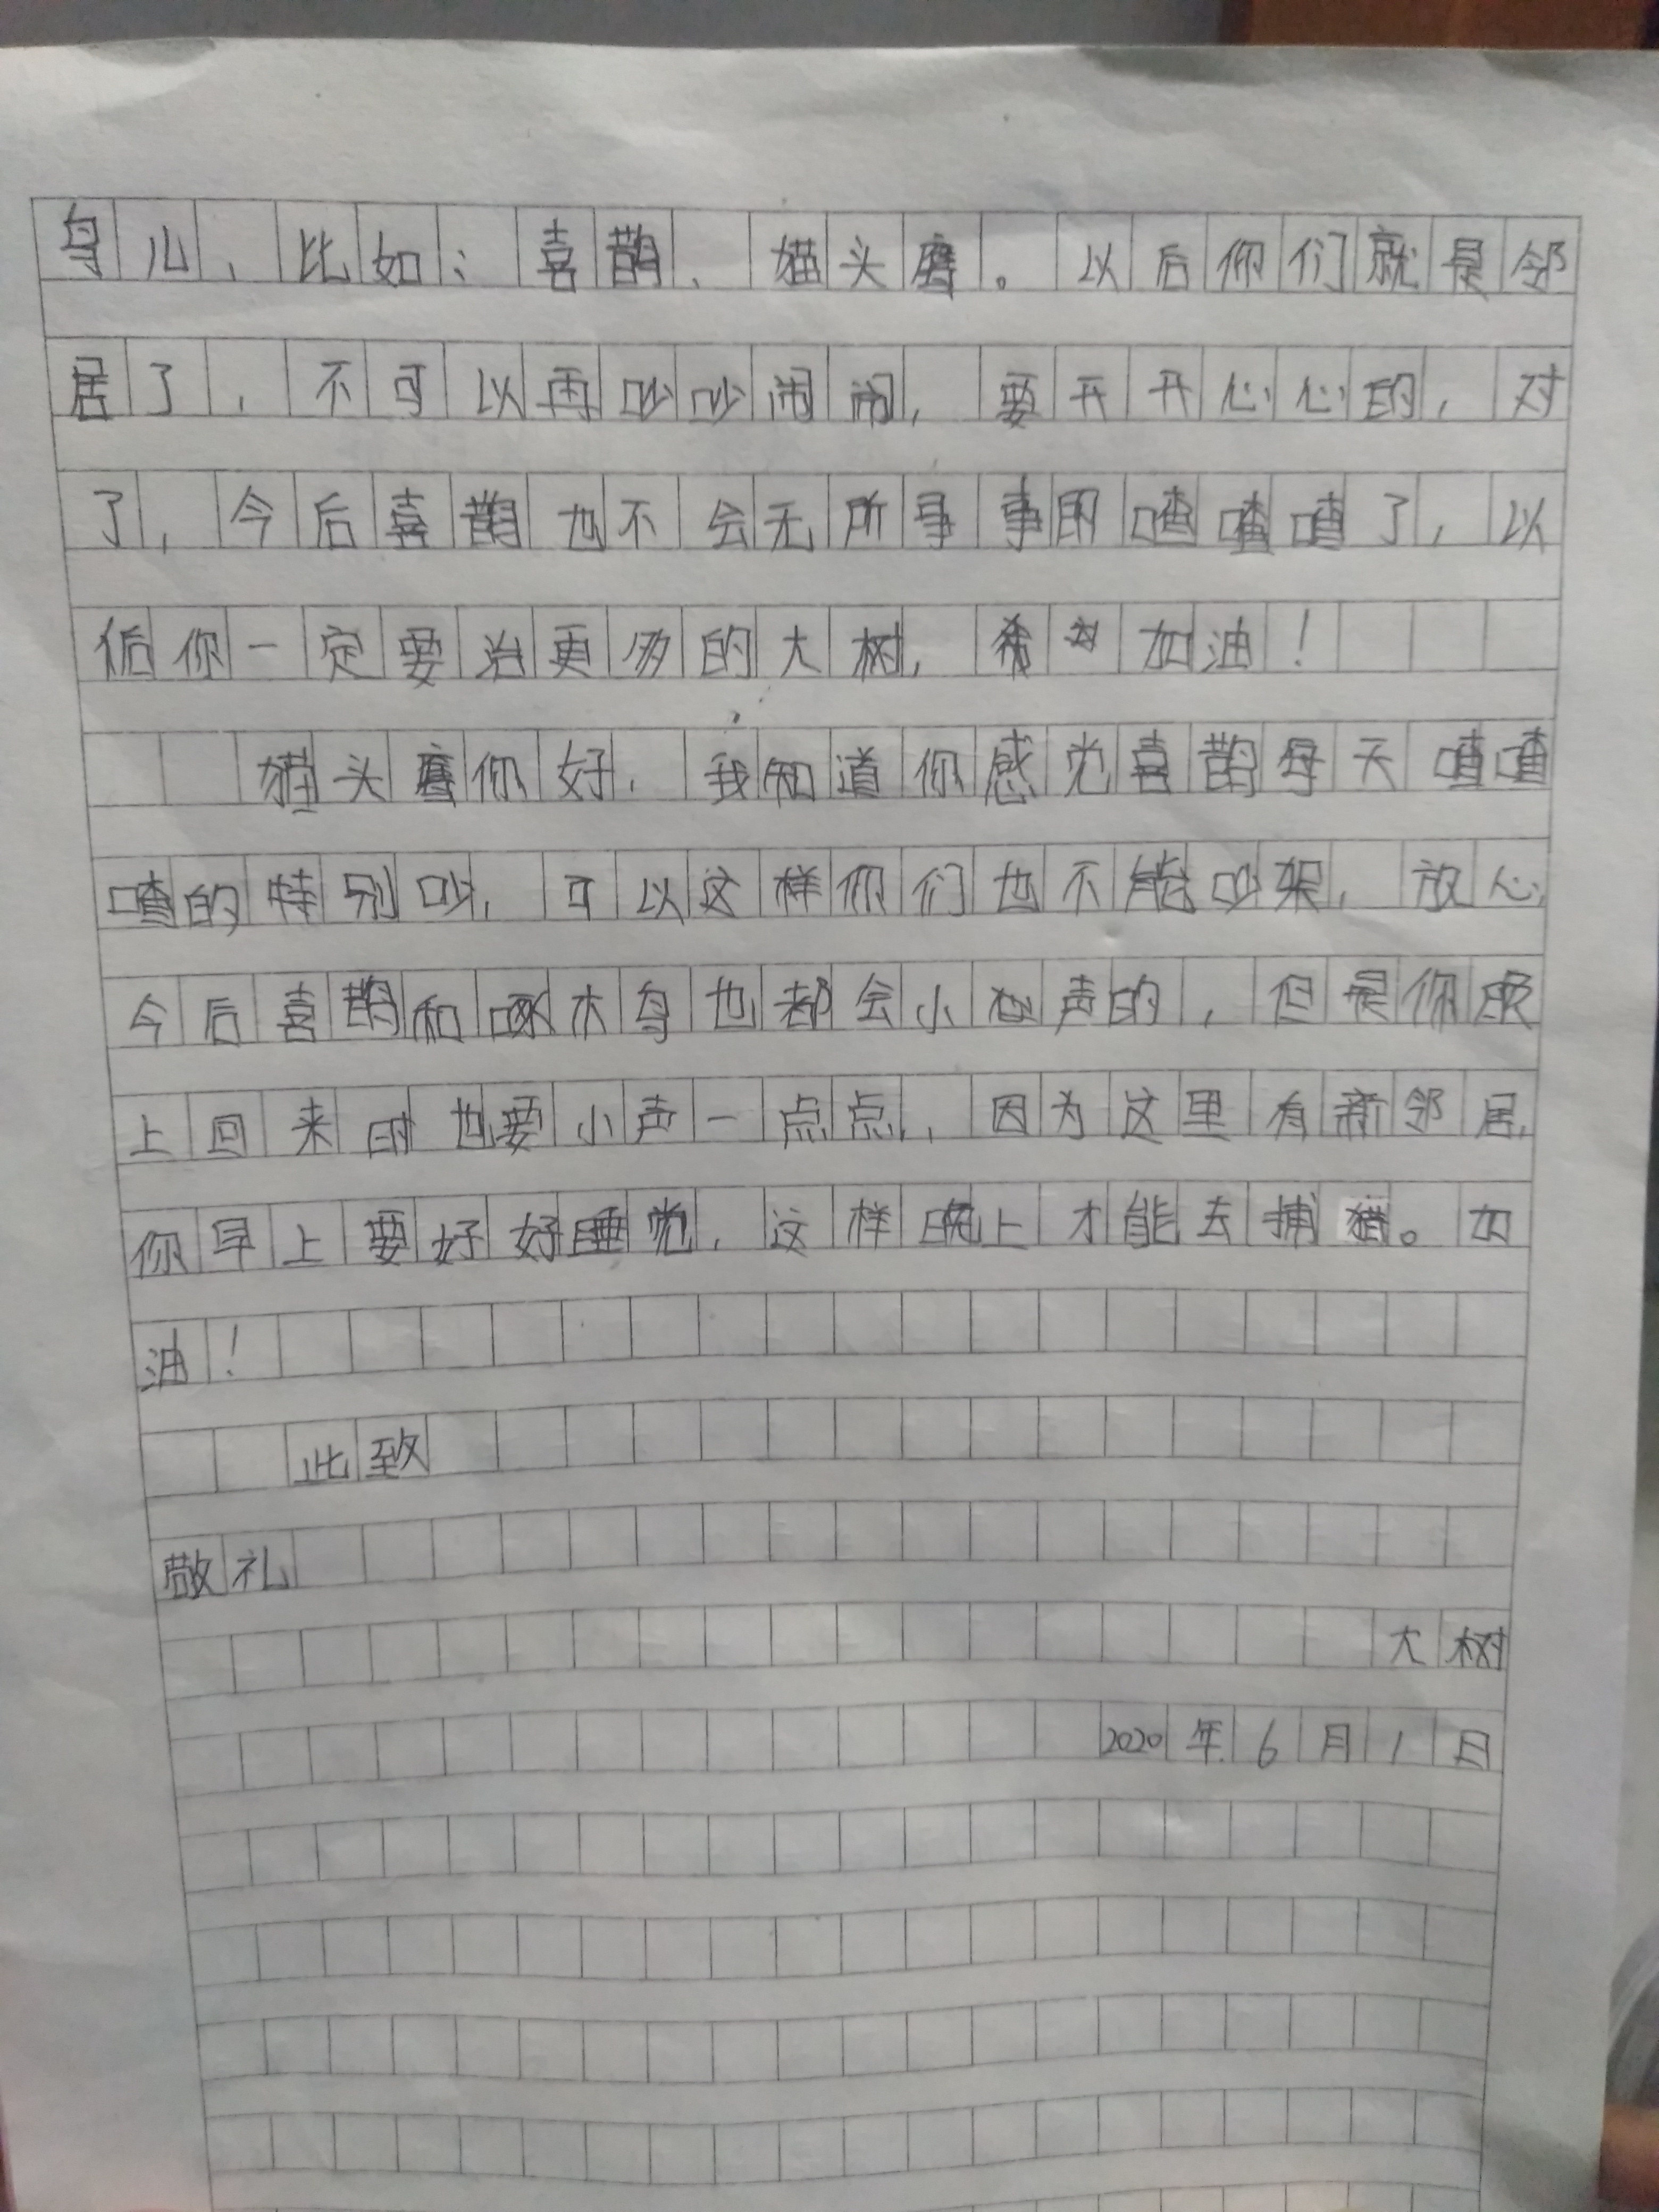 鸟儿，比如：喜鹊、猫头鹰。以后你们就是邻
居了，不可以再吵吵闹闹，要开开心心的，对
了，今后喜鹊也不会无所事事的喳喳喳了，以
后你一定要治更多的大树，加油！
猫头鹰你好，我知道你感觉喜鹊每天喳喳
喳的特别吵，可以这样你们也不能吵架，放心，
今后喜鹊和啄木鸟也都会小声的，但是你晚
上回来时也要小声一点点，因为这里有新邻居，
你早上要好好睡觉，这样晚上才能去捕猎。加
油！
此致
敬礼
大树
2020年6月1日